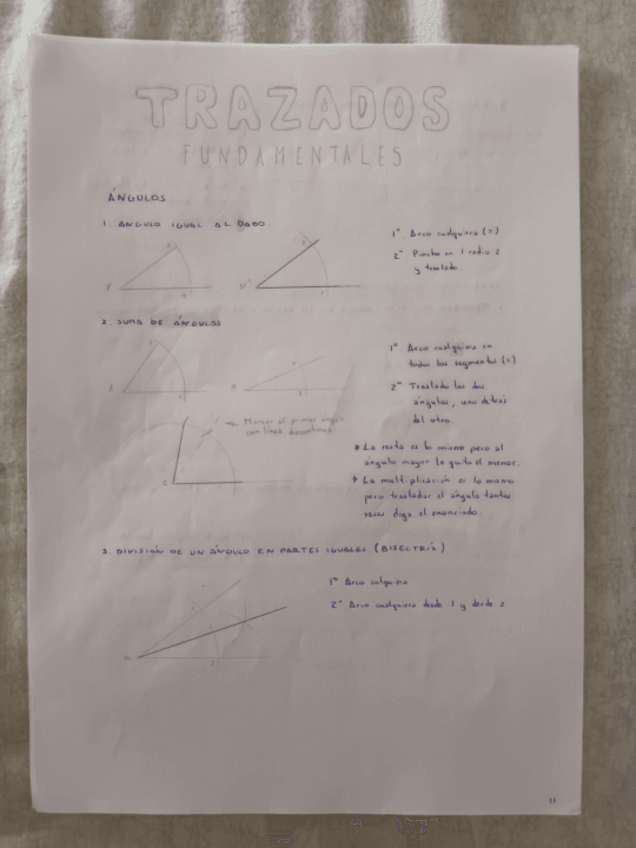 TRAZADOS
FUNDAMENTALES
ÁNGULOS
1. ANGULO IGUAL AL DADO.
1º Arco cualquiera (=)
2º Pincho en 1 radio 2
y traslado.
V
V'
2. SUMA DE ÁNGULOS
1º Arco cualquiera en
todos los segmentos (=)
2º Traslado los dos
ángulos, uno detrás
del otro.
A
B
C
Marcar el primer ángulo
con línea discontinua
* La resta es lo mismo pero al
ángulo mayor le quito el menor.
* La multiplicación es lo mismo
pero trasladar el ángulo tantas
veces diga el enunciado.
3. DIVISIÓN DE UN ÁNGULO EN PARTES IGUALES (BISECTRIZ)
1º Arco cualquiera
2º Arco cualquiera desde 1 y desde 2
2